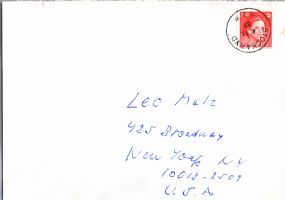 Leo Malz
425 Broadway
New York NY
10013-2509
U.S.A.